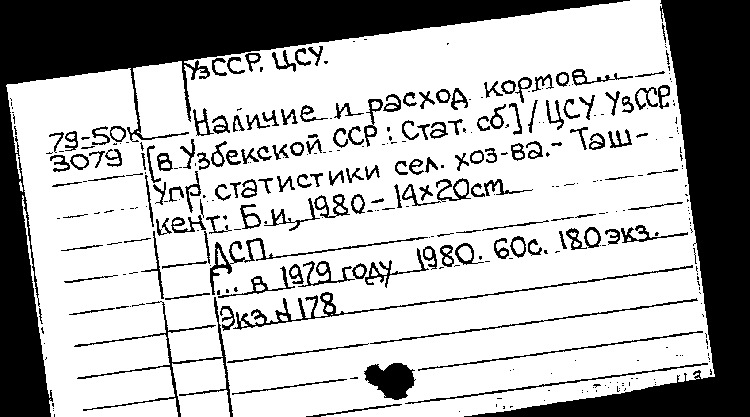 УзССР. ЦСУ.
Наличие и расход кортов...
79-50к
3079
[в Узбекской ССР: Стат. сб.] / ЦСУ УзССР.
Упр. статистики сел. хоз-ва. - Таш-
кент: Б.и., 1980 - 14×20cm.
ДСП.
... в 1979 году. 1980. 60с. 180 экз.
Экз. № 178.